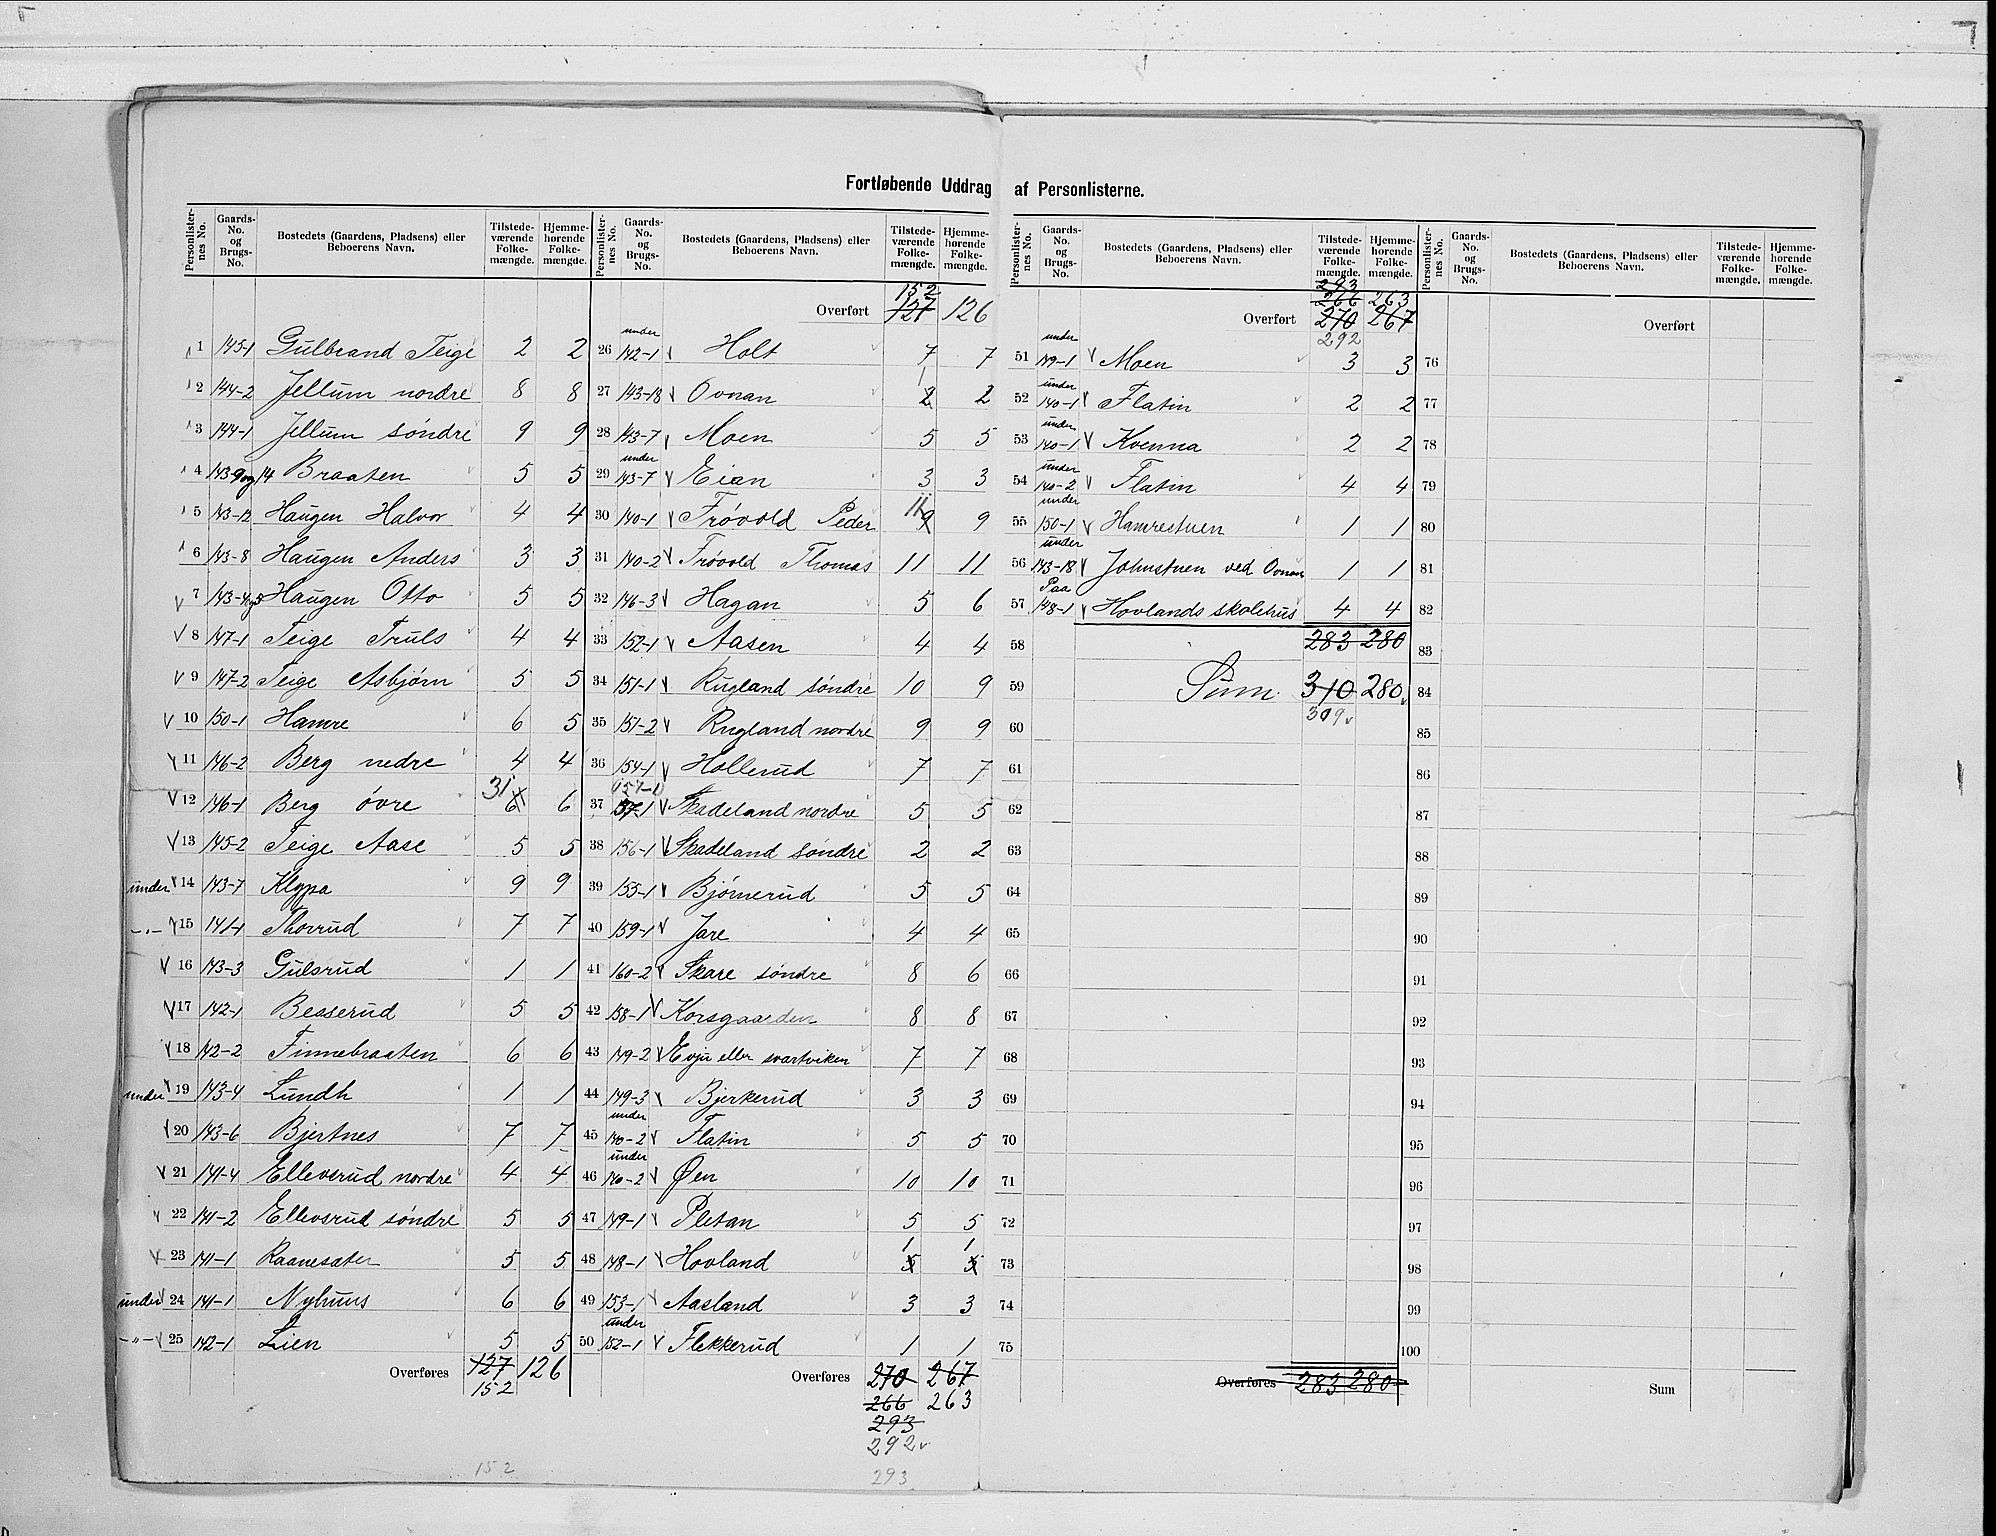 Fortløbende Uddrag af Personlisterne.
Personlister-nes No. Gaards-No. og Brugs-No. Bostedets (Gaardens, Pladsens) eller Beboerens Navn. Tilstede-værende Folke-mængde. Hjemme-hørende Folke-mængde.
1 145-1 Gulbrand Teige 2 2
2 144-2 Jellum nordre 8 8
3 144-1 Jellum søndre 9 9
4 143-9 og 14 Braaten 5 5
5 143-12 Haugen Halvor 4 4
6 143-8 Haugen Anders 3 3
7 143-4 og 5 Haugen Otto 5 5
8 147-1 Teige Truls 4 4
9 147-2 Teige Asbjørn 5 5
10 150-1 Hamre 6 5
11 146-2 Berg nedre 4 4
12 146-1 Berg øvre 31 6 6
13 145-2 Teige Aase 5 5
under 14 143-7 Kleppa 9 9
-"- 15 141-1 Thorrud 7 7
16 143-3 Gulsrud 1 1
17 142-1 Besserud 5 5
18 142-2 Finnebraaten 6 6
under 19 143-4 Lundh 1 1
20 143-6 Bjertnes 7 7
21 141-4 Ellevsrud nordre 4 4
22 141-2 Ellevsrud søndre 5 5
23 141-1 Raanesæter 5 5
under 24 141-1 Nyhuus 6 6
-"- 25 142-1 Lien 5 5
Overføres 127 126
152
152
Personlister-nes No. Gaards-No. og Brugs-No. Bostedets (Gaardens, Pladsens) eller Beboerens Navn. Tilstede-værende Folke-mængde. Hjemme-hørende Folke-mængde.
152
Overført 127 126
26 under 142-1 Holt 7 7
27 143-18 Ovnan 1 2 2
28 143-7 Moen 5 5
29 under 143-7 Eian 3 3
30 140-1 Trøvold Peder 11 9 9
31 140-2 Trøvold Thomas 11 11
32 146-3 Hagan 5 6
33 152-1 Aasen 4 4
34 151-1 Rugland søndre 10 9
35 151-2 Rugland nordre 9 9
36 154-1 Hollerud 7 7
37 157-1 57-1 Skadeland nordre 5 5
38 156-1 Skadeland søndre 2 2
39 155-1 Bjørnerud 5 5
40 159-1 Jare 4 4
41 160-2 Skare søndre 8 6
42 158-1 Korsgaarden 8 8
43 149-2 Evju eller svartviken 7 7
44 149-3 Bjerkerud 3 3
45 under 140-2 Flatin 5 5
46 under 140-2 Øen 10 10
47 149-1 Pletan 5 5
48 148-1 Hovland 1 5 1 5
49 153-1 Aasland 3 3
50 under 152-1 Flekkerud 1 1
Overføres 270 267
266 263
293
292
293
Personlister-nes No. Gaards-No. og Brugs-No. Bostedets (Gaardens, Pladsens) eller Beboerens Navn. Tilstede-værende Folke-mængde. Hjemme-hørende Folke-mængde.
293
266 263
Overført 270 267
292
51 under 149-1 Moen 3 3
52 under 140-1 Flatin 2 2
53 under 140-1 Kvenna 2 2
54 under 140-2 Flatin 4 4
55 under 150-1 Hamrestuen 1 1
56 under 143-18 Johnstuen ved Ovnan 1 1
57 Paa 148-1 Hovlands skolehus 4 4
58 283 280
59 Sum 310 280
309
60
61
62
63
64
65
66
67
68
69
70
71
72
73
74
75
Overføres 283 280
Personlister-nes No. Gaards-No. og Brugs-No. Bostedets (Gaardens, Pladsens) eller Beboerens Navn. Tilstede-værende Folke-mængde. Hjemme-hørende Folke-mængde.
Overført
76
77
78
79
80
81
82
83
84
85
86
87
88
89
90
91
92
93
94
95
96
97
98
99
100
Sum